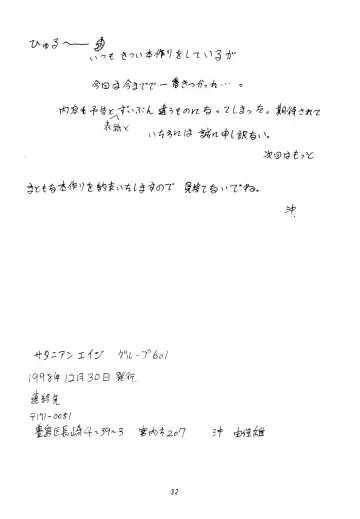 ひゅる〜
いつも きつい本作りをしているが
今回は今までで一番きつかった…。
内容も予告とずいぶん違うものになってしまった。期待されて
表紙と
いた方には 誠に申し訳ない。
次回はもっと
まともな本作りを約束いたしますので 見捨てないでね。
沖
サタニアンエイジ グループ601
1998年12月30日 発行.
連絡先
〒171-0051
豊島区長崎4-39-3 宮内方207 沖 由佳雄
32